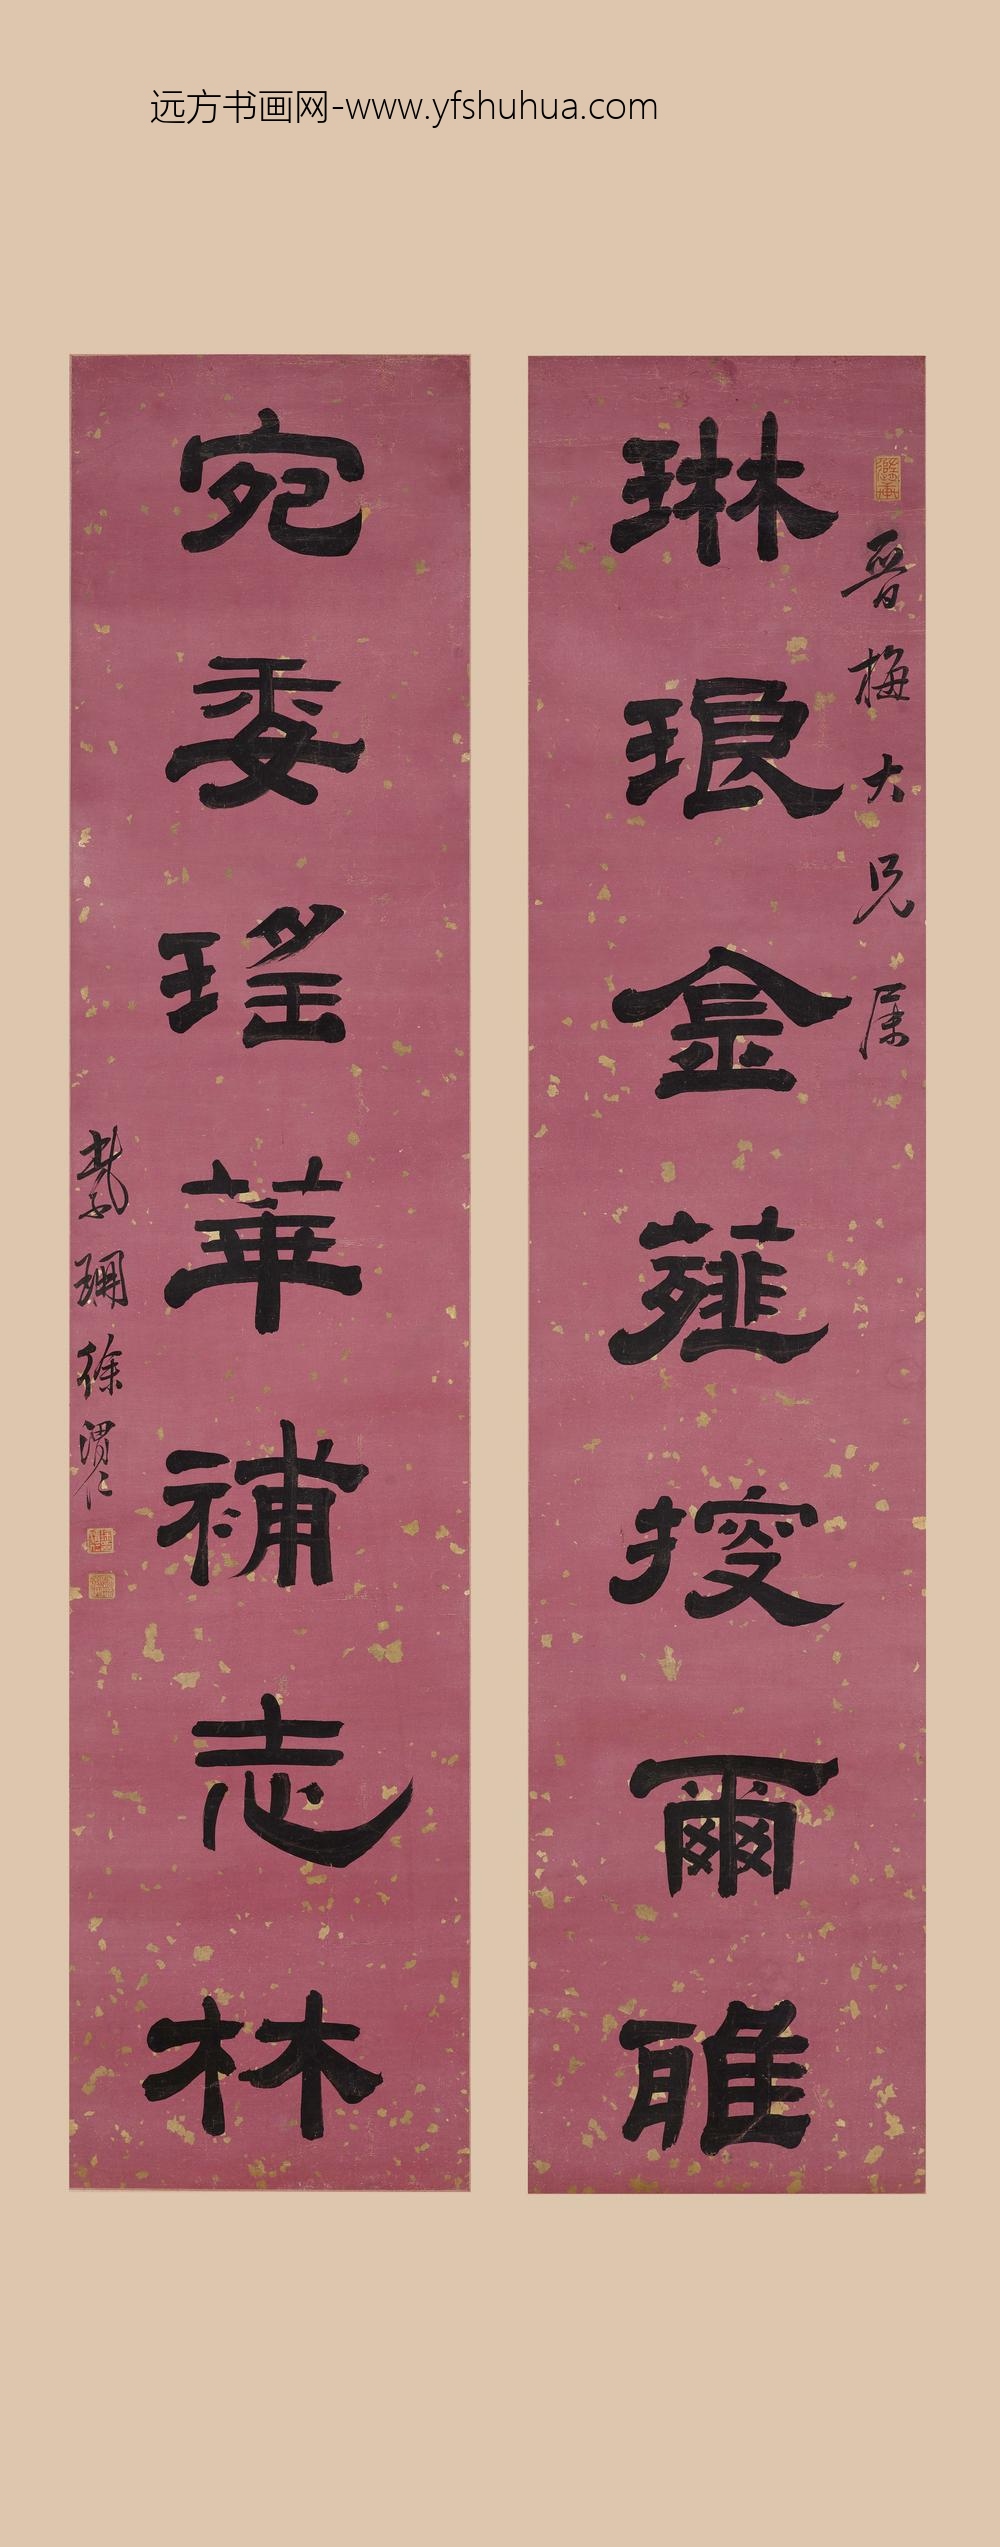 远方书画网-www.yfshuhua.com
晋梅大兄属
琳琅金薤探爾雅
宛委瑤華補志林
紫珊徐渭仁